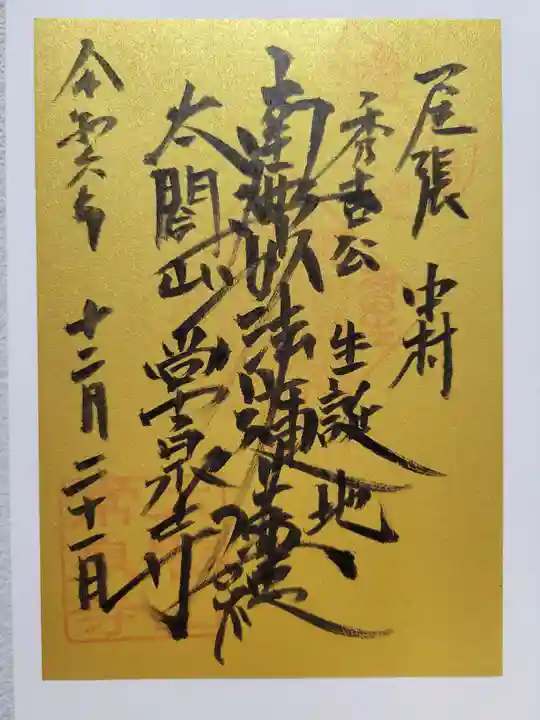 尾張 中村
秀吉公 生誕地
南無妙法蓮華経
太閤山 常泉寺
令和六年 十二月 二十一日